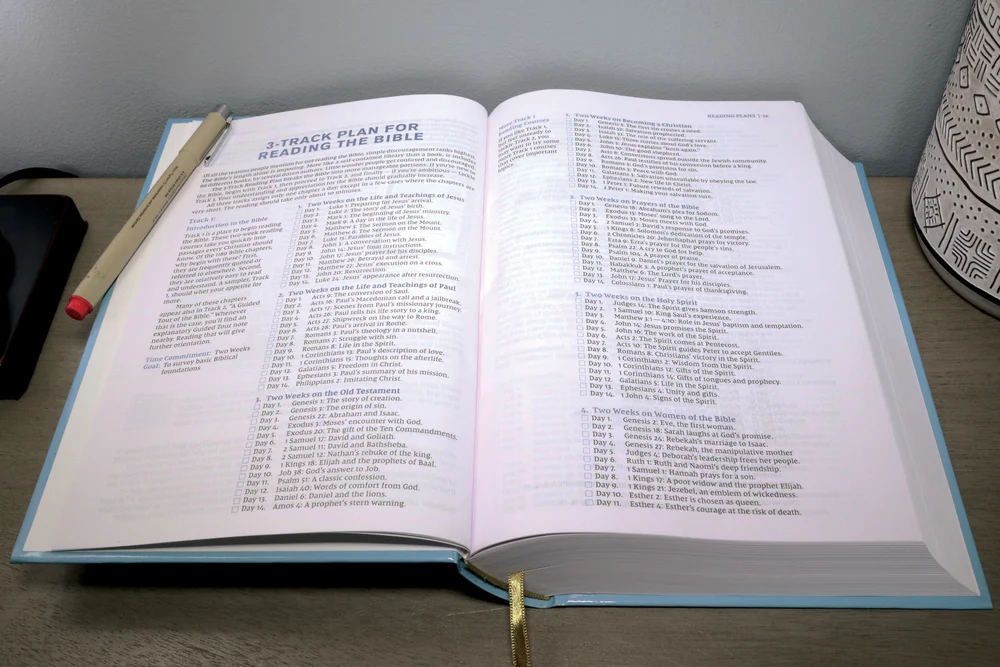 3-TRACK PLAN FOR
READING THE BIBLE
Track 1:
Introduction to the Bible
Track 1 is a place to begin reading
the Bible. These two-week reading
courses take you quickly into
passages every Christian should
know.
they are frequently quoted or
referred to elsewhere. Second,
they are relatively easy to read
and understand. A sampler, Track
1, should whet your appetite for
more.
Many of these chapters
appear also in Track 2, "A Guided
Tour of the Bible." Whenever
that is the case, you'll find an
explanatory Guided Tour note
nearby. Reading that will give
further orientation.
Time Commitment: Two Weeks
Goal: To survey basic Biblical
foundations
1. Two Weeks on the Life and Teachings of Jesus
Day 1. Luke 1: Preparing for Jesus' arrival.
Day 2. Luke 2: The story of Jesus' birth.
Day 3. Mark 1: The beginning of Jesus' ministry.
Day 4. Mark 9: A day in the life of Jesus.
Day 5. Matthew 5: The Sermon on the Mount.
Day 6. Matthew 6: The Sermon on the Mount.
Day 7. Luke 15: Parables of Jesus.
Day 8. John 3: A conversation with Jesus.
Day 9. John 14: Jesus' final instructions.
Day 10. John 17: Jesus' prayer for his disciples.
Day 11. Matthew 26: Betrayal and arrest.
Day 12. Matthew 27: Jesus' execution on a cross.
Day 13. John 20: Resurrection.
Day 14. Luke 24: Jesus' appearance after resurrection.
2. Two Weeks on the Life and Teachings of Paul
Day 1. Acts 9: The conversion of Saul.
Day 2. Acts 16: Paul's Macedonian call and a jailbreak.
Day 3. Acts 17: Scenes from Paul's missionary journey.
Day 4. Acts 26: Paul tells his life story to a king.
Day 5. Acts 27: Shipwreck on the way to Rome.
Day 6. Acts 28: Paul's arrival in Rome.
Day 7. Romans 3: Paul's theology in a nutshell.
Day 8. Romans 7: Struggle with sin.
Day 9. Romans 8: Life in the Spirit.
Day 10. 1 Corinthians 13: Paul's description of love.
Day 11. 1 Corinthians 15: Thoughts on the afterlife.
Day 12. Galatians 5: Freedom in Christ.
Day 13. Ephesians 3: Paul's summary of his mission.
Day 14. Philippians 2: Imitating Christ.
3. Two Weeks on the Old Testament
Day 1. Genesis 1: The story of creation.
Day 2. Genesis 3: The origin of sin.
Day 3. Genesis 22: Abraham and Isaac.
Day 4. Exodus 3: Moses' encounter with God.
Day 5. Exodus 20: The gift of the Ten Commandments.
Day 6. 1 Samuel 17: David and Goliath.
Day 7. 2 Samuel 11: David and Bathsheba.
Day 8. 2 Samuel 12: Nathan's rebuke of the king.
Day 9. 1 Kings 18: Elijah and the prophets of Baal.
Day 10. Job 38: God's answer to Job.
Day 11. Psalm 51: A classic confession.
Day 12. Isaiah 40: Words of comfort from God.
Day 13. Daniel 6: Daniel and the lions.
Day 14. Amos 4: A prophet's stern warning.
READING PLANS
More Track 1
Reading Courses
1. Two Weeks on Becoming a Christian
Day 1. Genesis 3: The first sin creates a need.
Day 2. Isaiah 52: Salvation prophesied.
Day 3. Isaiah 53: The role of the suffering servant.
Day 4. Luke 15: Three stories about God's love.
Day 5. John 3: Jesus explains "born again."
Day 6. John 10: The good shepherd.
Day 7. Acts 8: Conversions spread outside the Jewish community.
Day 8. Acts 26: Paul testifies of his conversion before a king.
Day 9. Romans 3: God's provision for sin.
Day 10. Romans 5: Peace with God.
Day 11. Galatians 3: Salvation unavailable by obeying the law.
Day 12. Ephesians 2: New life in Christ.
Day 13. 1 Peter 1: Future rewards of salvation.
Day 14. 2 Peter 1: Making your salvation sure.
2. Two Weeks on Prayers of the Bible
Day 1. Genesis 18: Abraham's plea for Sodom.
Day 2. Exodus 15: Moses' song to the Lord.
Day 3. Exodus 33: Moses meets with God.
Day 4. 2 Samuel 7: David's response to God's promises.
Day 5. 1 Kings 8: Solomon's dedication of the temple.
Day 6. 2 Chronicles 20: Jehoshaphat prays for victory.
Day 7. Ezra 9: Ezra's prayer for the people's sins.
Day 8. Psalm 22: A cry to God for help.
Day 9. Psalm 104: A prayer of praise.
Day 10. Daniel 9: Daniel's prayer for the salvation of Jerusalem.
Day 11. Habakkuk 3: A prophet's prayer of acceptance.
Day 12. Matthew 6: The Lord's prayer.
Day 13. John 17: Jesus' Prayer for his disciples.
Day 14. Colossians 1: Paul's prayer of thanksgiving.
3. Two Weeks on the Holy Spirit
Day 1. Judges 14: The Spirit gives Samson strength.
Day 2. 1 Samuel 10: King Saul's experience.
Day 3. Matthew 3:1 — 4:10: Role in Jesus' baptism and temptation.
Day 4. John 14: Jesus promises the Spirit.
Day 5. John 16: The work of the Spirit.
Day 6. Acts 2: The Spirit comes at Pentecost.
Day 7. Acts 10: The Spirit guides Peter to accept Gentiles.
Day 8. Romans 8: Christians' victory in the Spirit.
Day 9. 1 Corinthians 2: Wisdom from the Spirit.
Day 10. 1 Corinthians 12: Gifts of the Spirit.
Day 11. 1 Corinthians 14: Gifts of tongues and prophecy.
Day 12. Galatians 5: Life in the Spirit.
Day 13. Ephesians 4: Unity and gifts.
Day 14. 1 John 4: Signs of the Spirit.
4. Two Weeks on Women of the Bible
Day 1. Genesis 2: Eve, the first woman.
Day 2. Genesis 18: Sarah laughs at God's promise.
Day 3. Genesis 24: Rebekah's marriage to Isaac.
Day 4. Genesis 27: Rebekah, the manipulative mother
Day 5. Judges 4: Deborah's leadership frees her people.
Day 6. Ruth 1: Ruth and Naomi's deep friendship.
Day 7. 1 Samuel 1: Hannah prays for a son.
Day 8. 1 Kings 17: A poor widow and the prophet Elijah.
Day 9. 1 Kings 21: Jezebel, an emblem of wickedness.
Day 10. Esther 2: Esther is chosen as queen.
Day 11. Esther 4: Esther's courage at the risk of death.